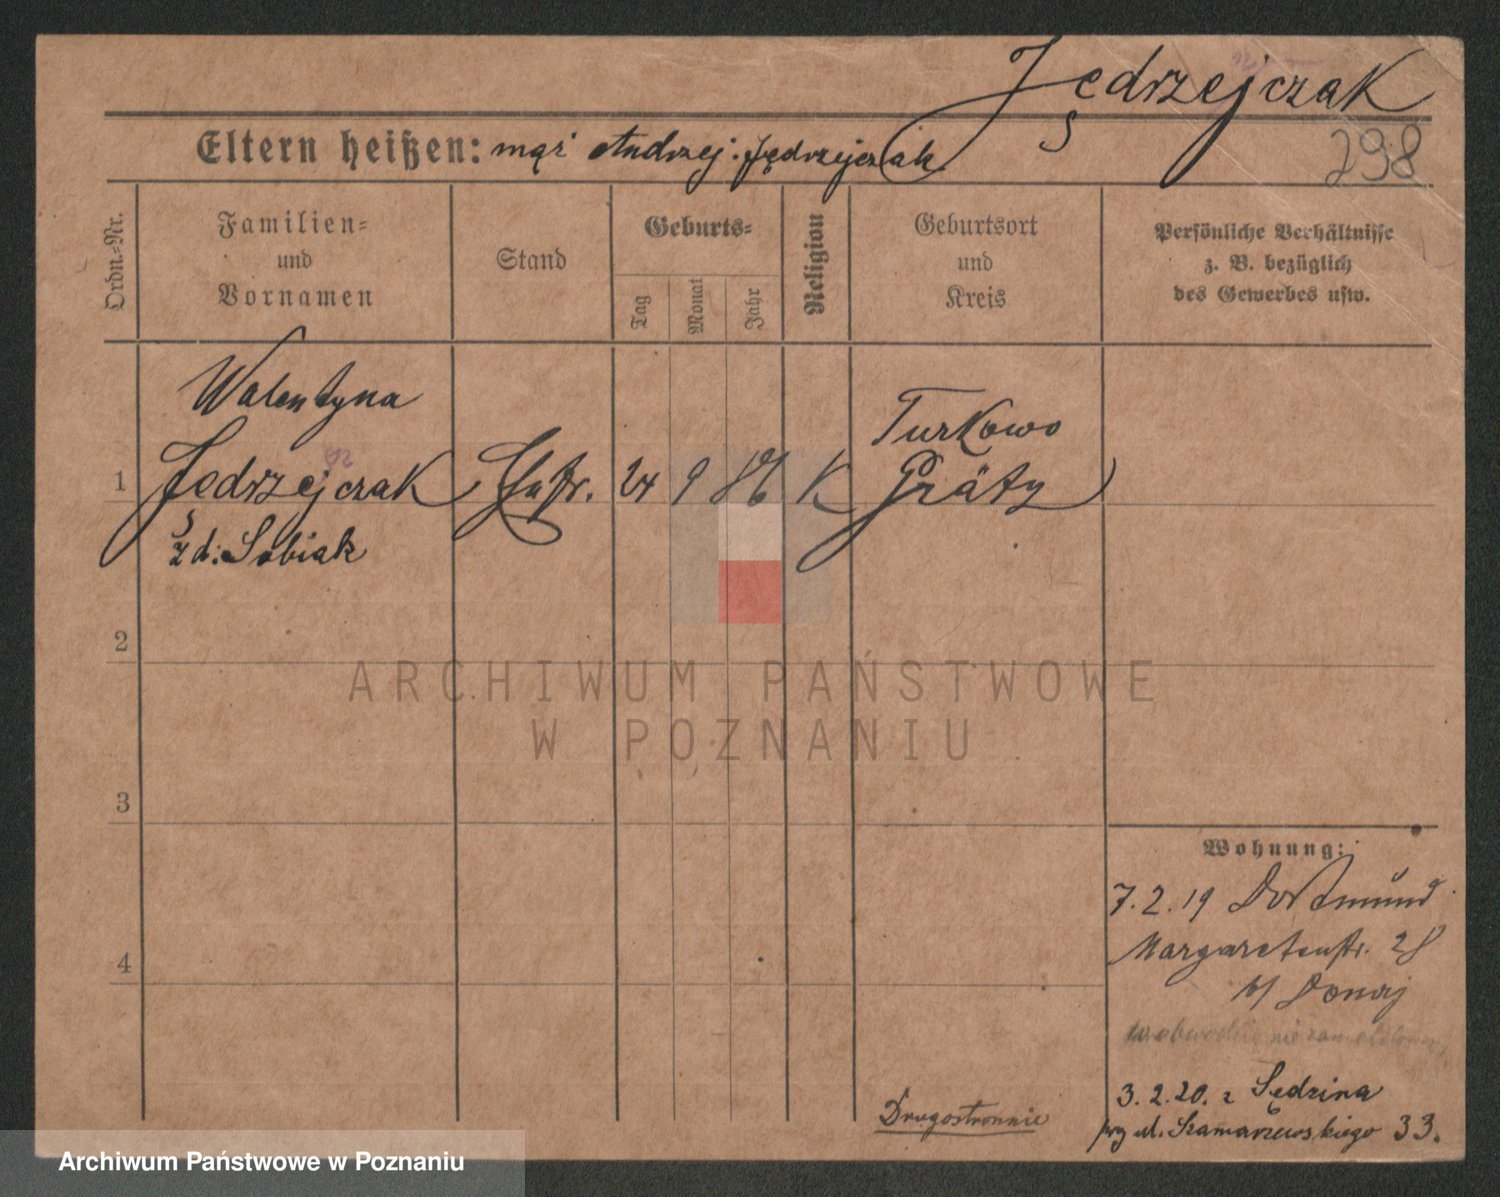 Jędrzejczak
Eltern heißen: mąż Andrzej Jędrzejczak
298
Ordn.-Nr.
Familien-
und
Vornamen
Stand
Geburts-
Tag
Monat
Jahr
Religion
Geburtsort
und
Kreis
Persönliche Verhältnisse
z. B. bezüglich
des Gewerbes usw.
Walentyna
Turkowo
1 Jędrzejczak 24 9 86 K Grätz
z d. Sobiak
2
ARCHIWUM PAŃSTWOWE
W POZNANIU
3
Wohnung:
7.2.19 Dortmund
4
Margaretenstr. 28
b/ Donaj
3.2.20. z Sędzina
przy ul. Szamarzewskiego 33.
Drugostronnie
Archiwum Państwowe w Poznaniu